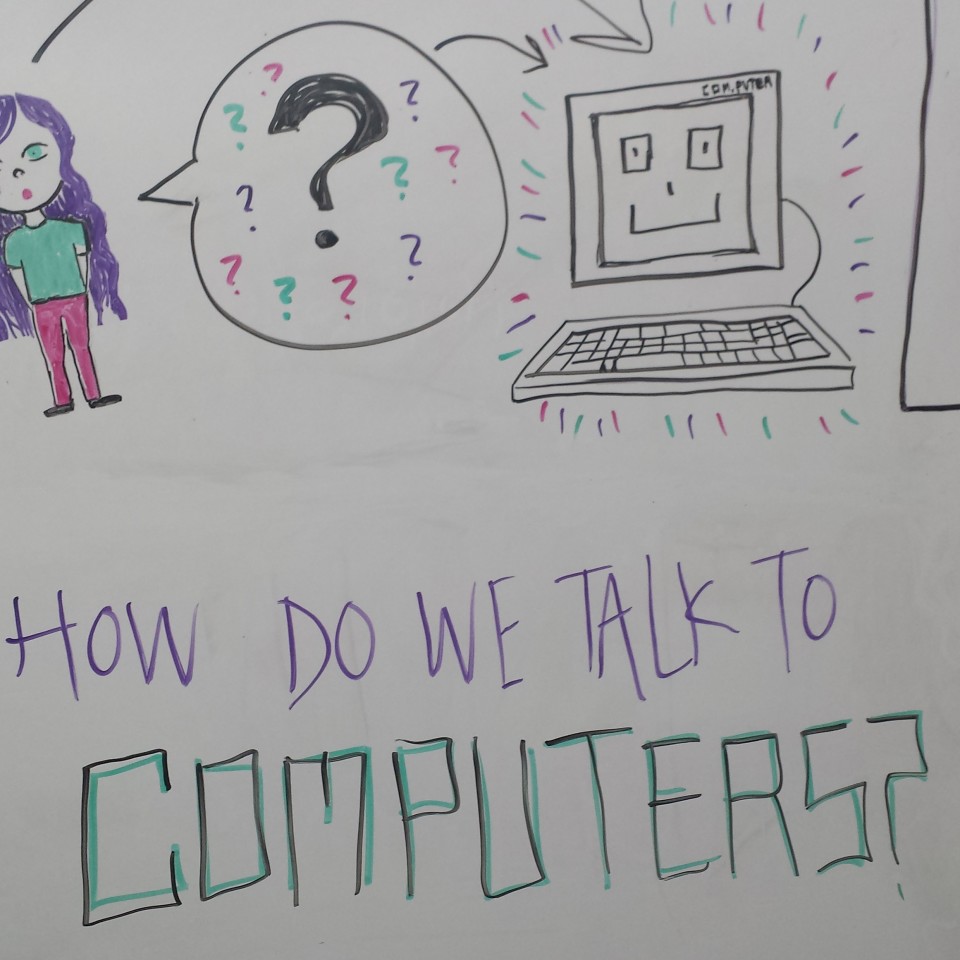 COMPUTER
HOW DO WE TALK TO
COMPUTERS?